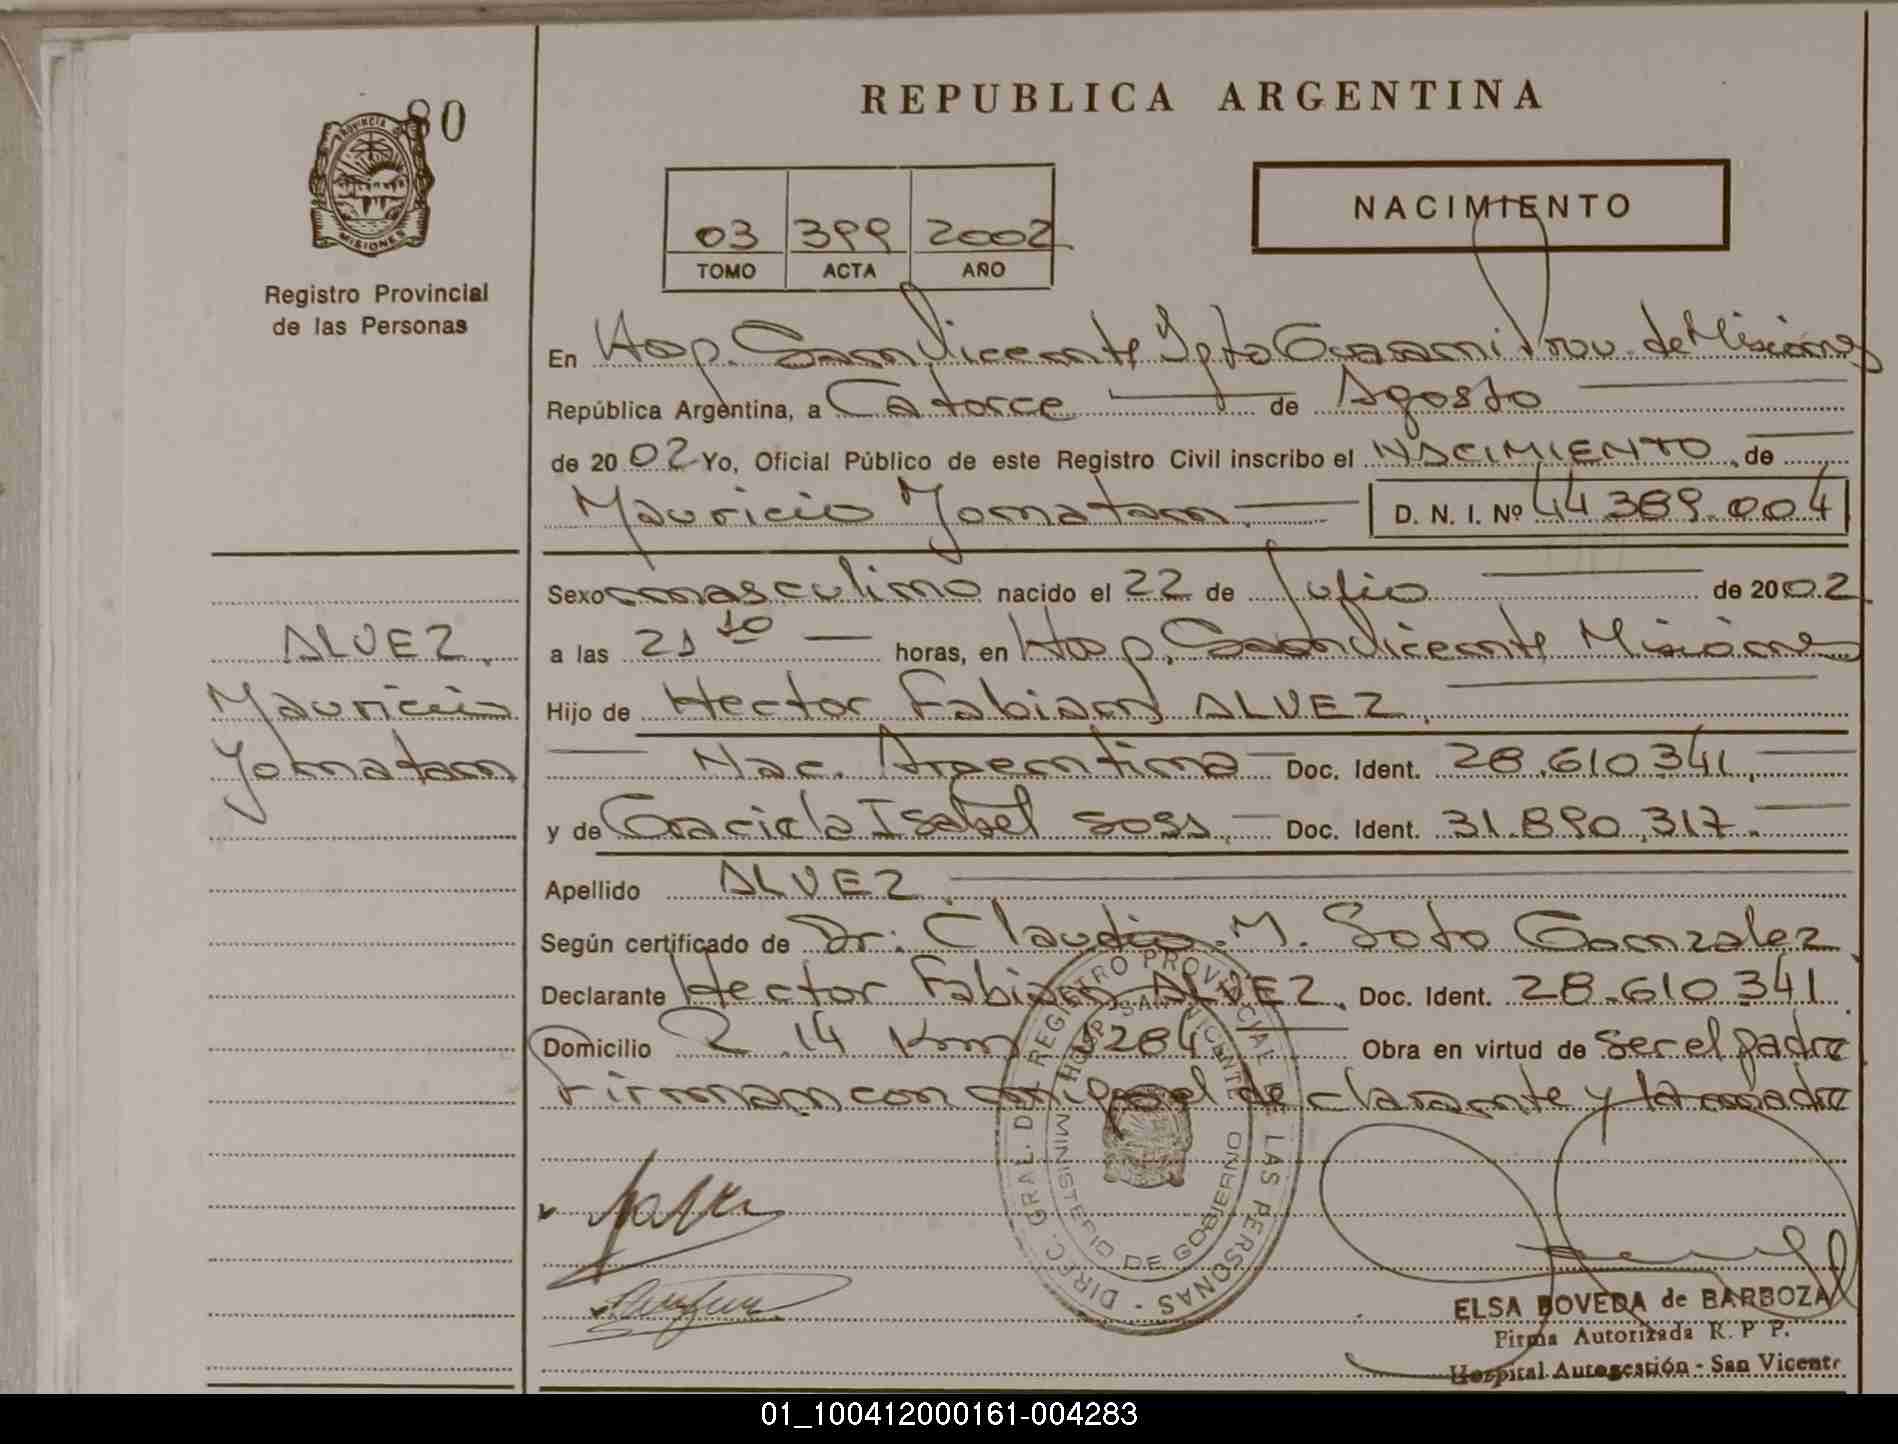 80
PROVINCIA DE
MISIONES
Registro Provincial
de las Personas
REPUBLICA ARGENTINA
03 399 2002
TOMO ACTA AÑO
NACIMIENTO
En Hosp. San Vicente Dpto Guarani Prov. de Misiones
República Argentina, a Catorce de Agosto
de 2002 Yo, Oficial Público de este Registro Civil inscribo el NACIMIENTO de
Mauricio Yonatan. D. N. I. Nº 44 389.004
Sexo masculino nacido el 22 de Julio de 2002
a las 21 10 horas, en Hosp. San Vicente Misiones
Hijo de Hector Fabian ALVEZ.
Nac. Argentina Doc. Ident. 28.610 341.
y de Graciela Isabel Doc. Ident. 31.890.317.
Apellido ALVEZ
Según certificado de Dr. Claudio M. Soto Gonzalez
Declarante Hector Fabian ALVEZ. Doc. Ident. 28.610 341
Domicilio R. 14 Km 1284 Obra en virtud de ser el padre
Firman conmigo el declarante y la madre
ALVEZ.
Mauricio
Yonatan
DIREC. GRAL. DEL REGISTRO PROVINCIAL DE LAS PERSONAS -
HOSP. SAN VICENTE
MINISTERIO DE GOBIERNO
ELSA BOVEDA de BARBOZA
Firma Autorizada R. P P.
Hospital Autogestión - San Vicente
01_100412000161-004283